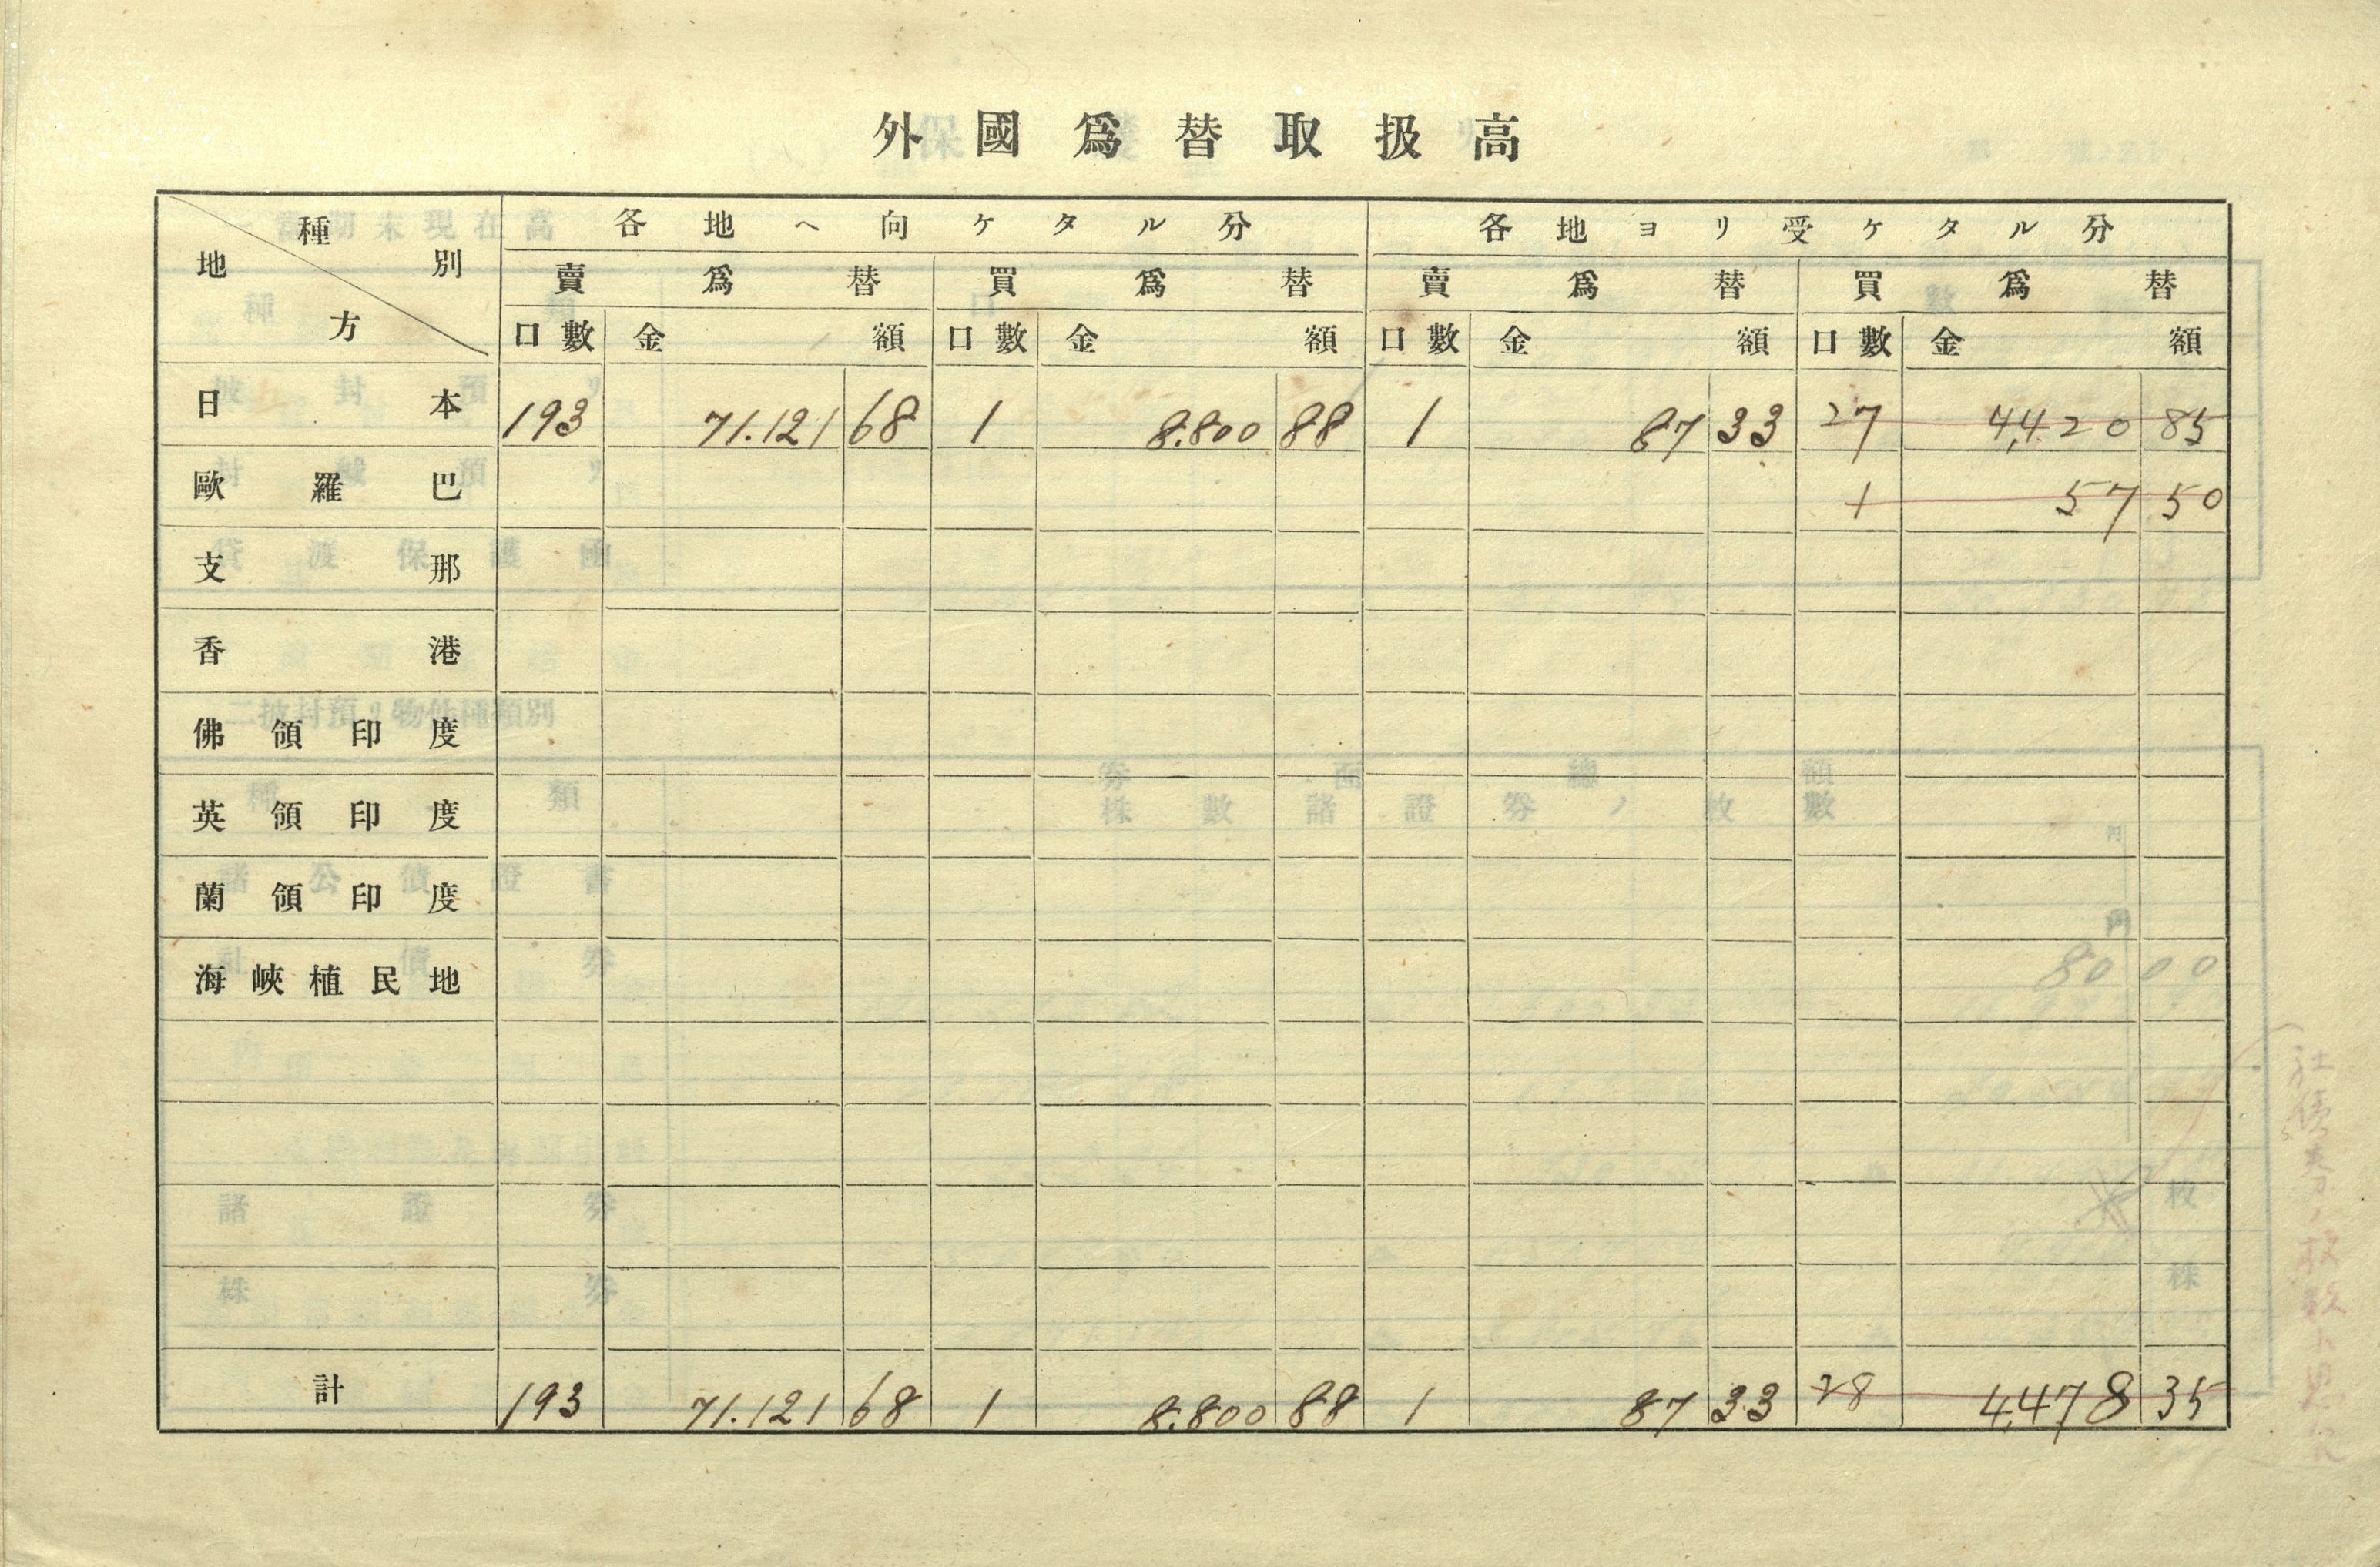 外國爲替取扱高
種別 地方 各地ヘ向ケタル分 各地ヨリ受ケタル分
賣爲替 買爲替 賣爲替 買爲替
口數 金額 口數 金額 口數 金額 口數 金額
日本 193 71.121 68 1 8.800 88 1 87 33 27 4,420 85
歐羅巴 1 57 50
支那
香港
佛領印度
英領印度
蘭領印度
海峽植民地
計 193 71.121 68 1 8.800 88 1 87 33 28 4,478 35